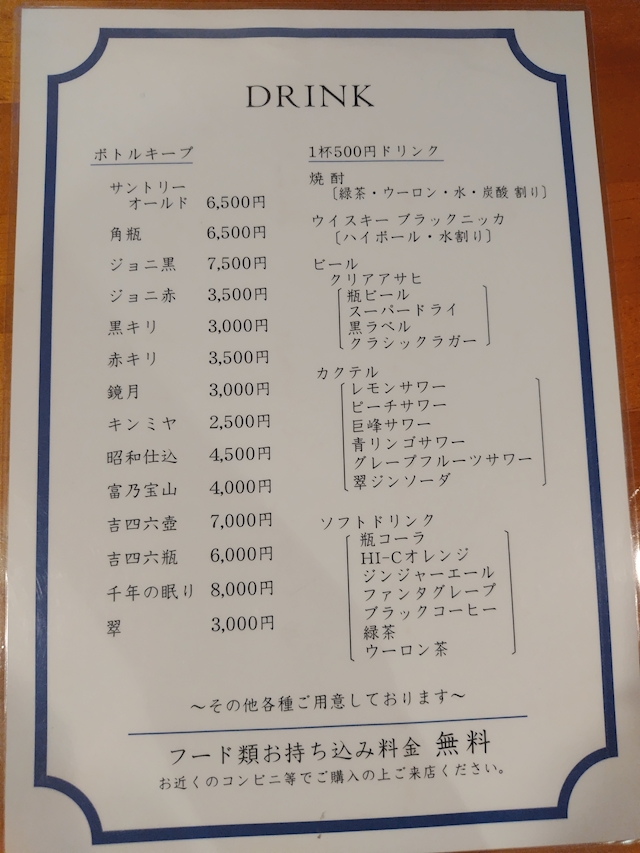 DRINK
ボトルキープ
サントリー
オールド 6,500円
角瓶 6,500円
ジョニ黒 7,500円
ジョニ赤 3,500円
黒キリ 3,000円
赤キリ 3,500円
鏡月 3,000円
キンミヤ 2,500円
昭和仕込 4,500円
富乃宝山 4,000円
吉四六壺 7,000円
吉四六瓶 6,000円
千年の眠り 8,000円
翠 3,000円
1杯500円ドリンク
焼酎
〔緑茶・ウーロン・水・炭酸 割り〕
ウイスキー ブラックニッカ
〔ハイボール・水割り〕
ビール
クリアアサヒ
瓶ビール
スーパードライ
黒ラベル
クラシックラガー
カクテル
レモンサワー
ピーチサワー
巨峰サワー
青リンゴサワー
グレープフルーツサワー
翠ジンソーダ
ソフトドリンク
瓶コーラ
HI-Cオレンジ
ジンジャーエール
ファンタグレープ
ブラックコーヒー
緑茶
ウーロン茶
〜その他各種ご用意しております〜
フード類お持ち込み料金 無料
お近くのコンビニ等でご購入の上ご来店ください。